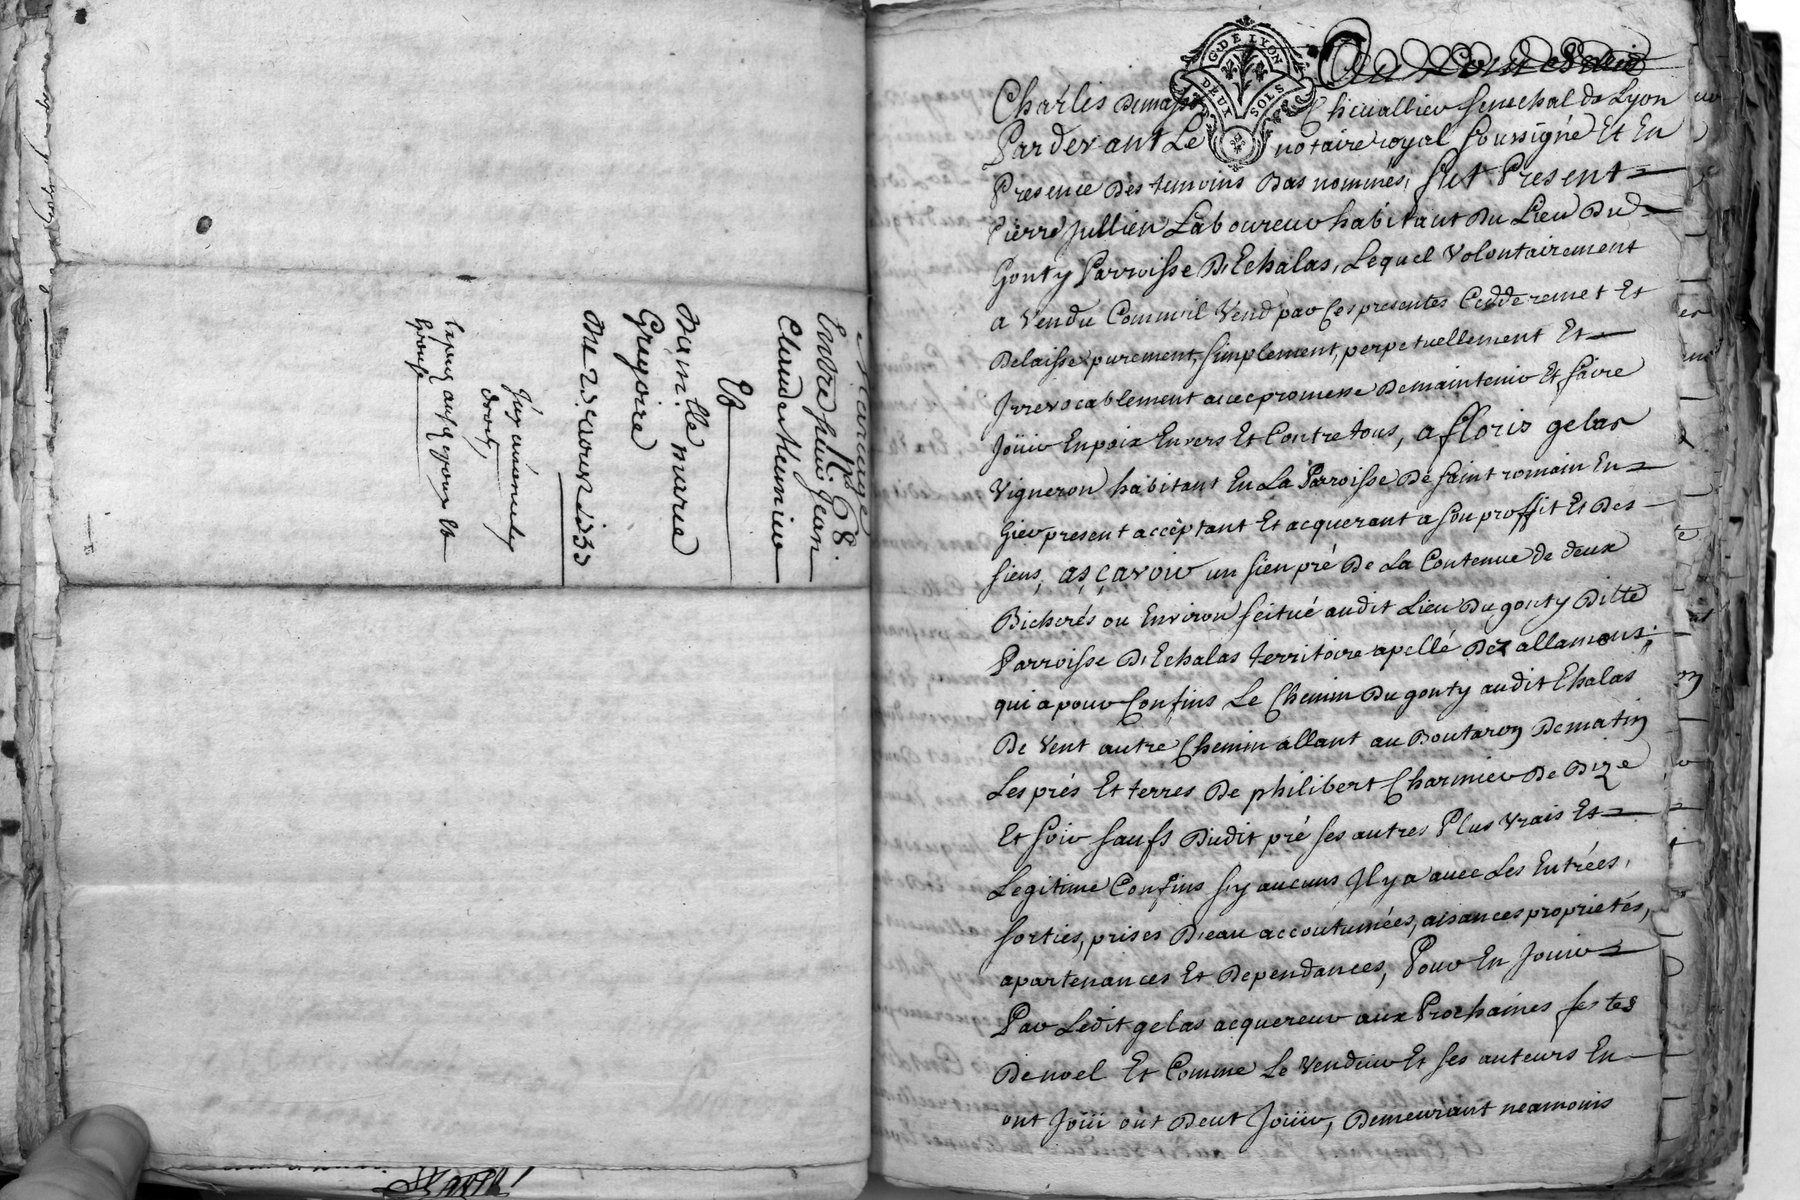 Mariage
Entre sieur Jean
Claude Meunier
Et
Dam.lle marie
Gregoire
G. DE LYON
DEUX SOLS
Charles Demasso Chevallier Senechal de Lyon
Pardevant Le notaire royal soussigné Et En
Presence Des temoins Bas nommés, fut Present
Pierre Jullien Laboureur habitant Du Lieu Du
Gonty Parroisse D'Echalas, Lequel volontairement
a vendu Comme il vend par Ces presentes Cedde remet Et
Delaisse purement, simplement, perpetuellement Et
Irrevocablement avec promesse De maintenir Et faire
Joüir En paix Envers Et Contre tous, a ffloris gelas
Vigneron habitant En La Parroisse De saint romain En
Gier present acceptant Et acquerant a son proffit Et Des
siens, asçavoir un sien pré De La Contenue de deux
Bicherés ou Environ scitué audit Lieu Du gonty Ditte
Parroisse D'Echalas territoire apellé Dez allamons;
qui a pour Confins Le Chemin Du gonty audit Ehalas
De vent autre Chemin allant au Boutaron De matin
Les prés Et terres De philibert Charmier De Bize
Et soir saufs Dudit pré ses autres Plus vrais Et
Legitime Confins sy aucuns Il y a avec Les Entrées,
sorties, prises D'eau accoutumées, aisances proprietés,
apartenances Et Dependances, Pour En Jouir
Par Ledit gelas acquereur aux Prochaines festes
De noel Et Comme Le vendeur Et ses auteurs En
ont Joüi ont Deut Joüir, Demeurant neamoins